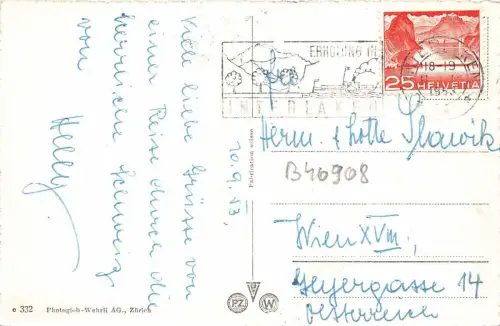 Viele liebe Grüsse von
einer Reise durch die
herrliche Schweiz
von
Helly.
20.9.53.
ERHOLUNG IN
INTERLAKEN
18-19
1953
25
HELVETIA
Herm. & Lotte Slawik
B46908
Wien XVIII,
Geyergasse 14
Österreich
Fabrication suisse
e 332 Photoglob-Wehrli AG., Zürich
PZ
W